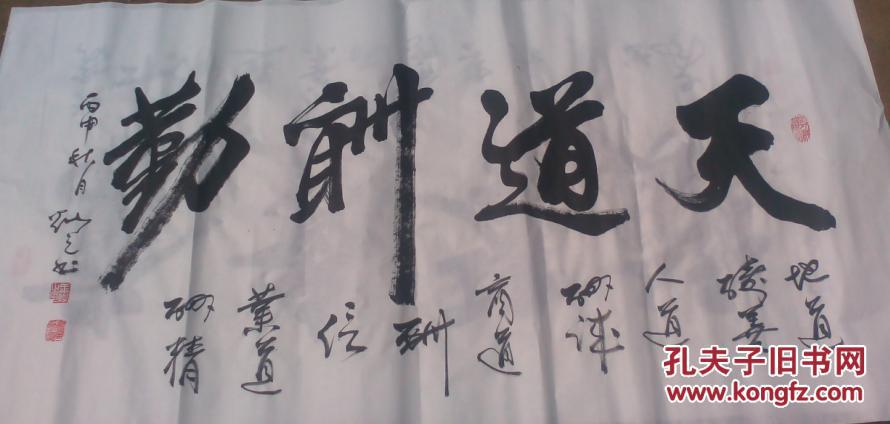 天道酬勤
地道
酬善
人道
酬诚
商道
酬
信
業道
酬精
丙申秋月
孔夫子旧书网
www.kongfz.com